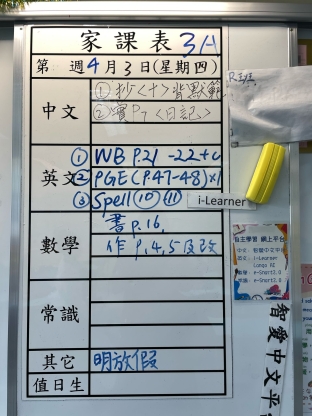 家課表 3A
第 週 4月3日(星期四)
中文
① 抄<十>背默範
② 寶P7<日記>
英文
① WB P.21-22+c
② PGE(P.47-48)×1
③ Spell ⑩ ⑪
i-Learner
數學
書 P.16,
作 P.4,5及改
常識
其它
明放假
值日生
R班
自主學習 網上平台
智愛中文平